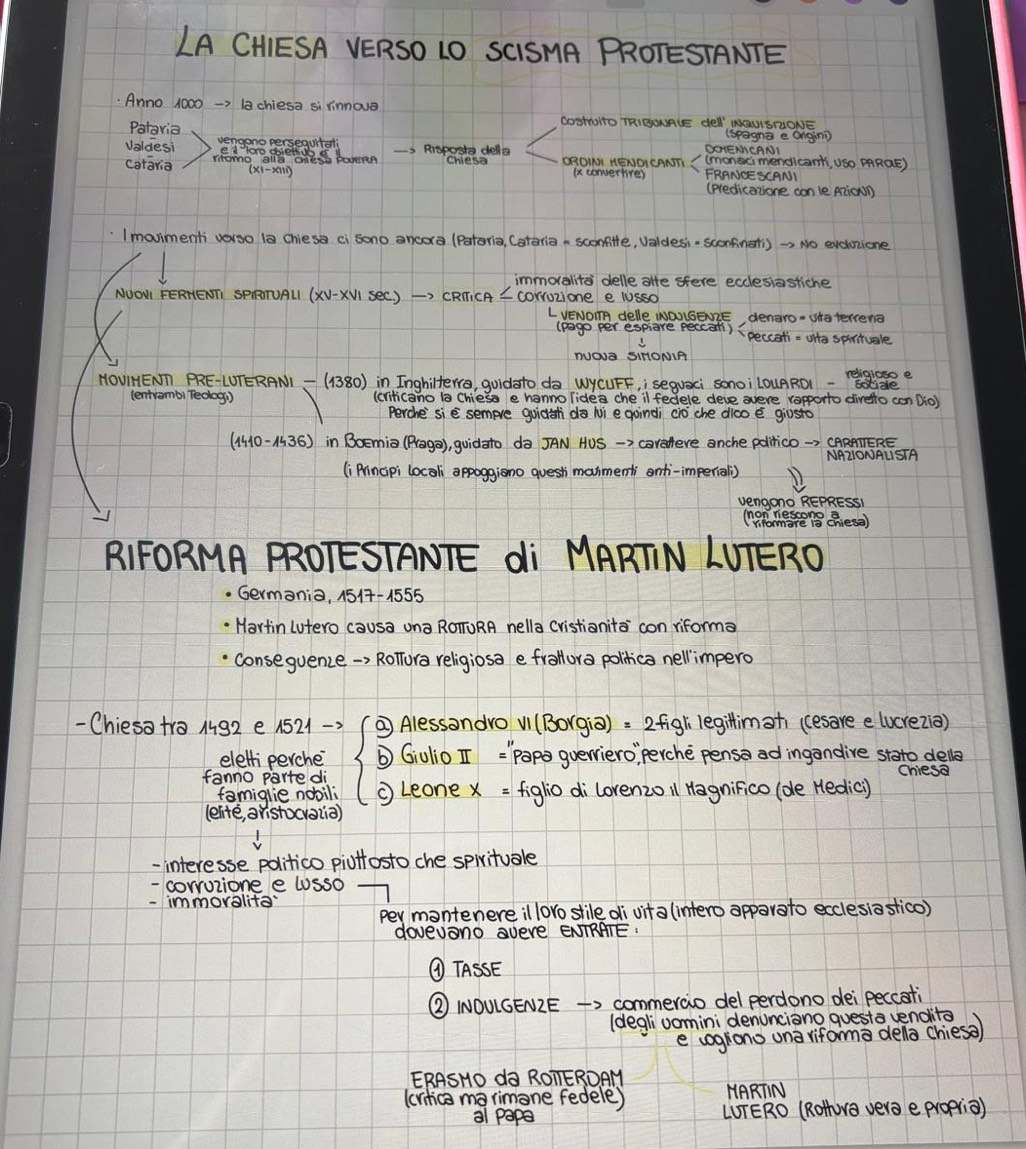 LA CHIESA VERSO LO SCISMA PROTESTANTE
· Anno 1000 -> la chiesa si rinnova
Pataria
Valdesi
Cataria
vengono perseguitati
e il loro obiettivo è il
ritorno alla chiesa POVERA
(XI-XIII)
-> Risposta della
Chiesa
Costruito TRIBUNALE dell' INQUISIZIONE
(Spagna e Origini)
ORDINI MENDICANTI
(x convertire)
DOMENICANI
(monaci mendicanti, USO PAROLE)
FRANCESCANI
(Predicazione con le AZIONI)
· I movimenti verso la chiesa ci sono ancora (Pataria, Cataria = sconfitte, Valdesi = sconfinati) -> NO evoluzione
NUOVI FERMENTI SPIRITUALI (XV-XVI sec.) -> CRITICA
immoralità delle alte sfere ecclesiastiche
corruzione e lusso
VENDITA delle INDULGENZE
(pago per espiare peccati)
denaro = vita terrena
peccati = vita spirituale
nuova SIMONIA
MOVIMENTI PRE-LUTERANI
(entrambi Teologi)
- (1380) in Inghilterra, guidato da WYCLIFF, i seguaci sono i LOLLARDI - religioso e
sociale
(criticano la Chiesa e hanno l'idea che il fedele deve avere rapporto diretto con Dio)
Perché si è sempre guidati da lui e quindi ciò che dico è giusto
(1410-1436) in Boemia (Praga), guidato da JAN HUS -> carattere anche politico -> CARATTERE
NAZIONALISTA
(i Principi locali appoggiano questi movimenti anti-imperiali)
vengono REPRESSI
(non riescono a
riformare la chiesa)
RIFORMA PROTESTANTE di MARTIN LUTERO
• Germania, 1517-1555
• Martin Lutero causa una ROTTURA nella Cristianità con riforma
• Conseguenze -> Rottura religiosa e frattura politica nell'impero
- Chiesa tra 1492 e 1521 ->
eletti perché
fanno parte di
famiglie nobili
(elité, aristocrazia)
a) Alessandro VI (Borgia) = 2 figli legittimati (Cesare e Lucrezia)
b) Giulio II = "Papa guerriero", perché pensa ad ingandire stato della
Chiesa
c) Leone X = figlio di Lorenzo il Magnifico (de Medici)
- interesse politico piuttosto che spirituale
- corruzione e lusso
- immoralità
Per mantenere il loro stile di vita (intero apparato ecclesiastico)
dovevano avere ENTRATE:
1 TASSE
2 INDULGENZE -> commercio del perdono dei peccati
(degli uomini denunciano questa vendita
e vogliono una riforma della chiesa)
ERASMO da ROTTERDAM
(critica ma rimane fedele)
al Papa
MARTIN
LUTERO (Rottura vera e propria)